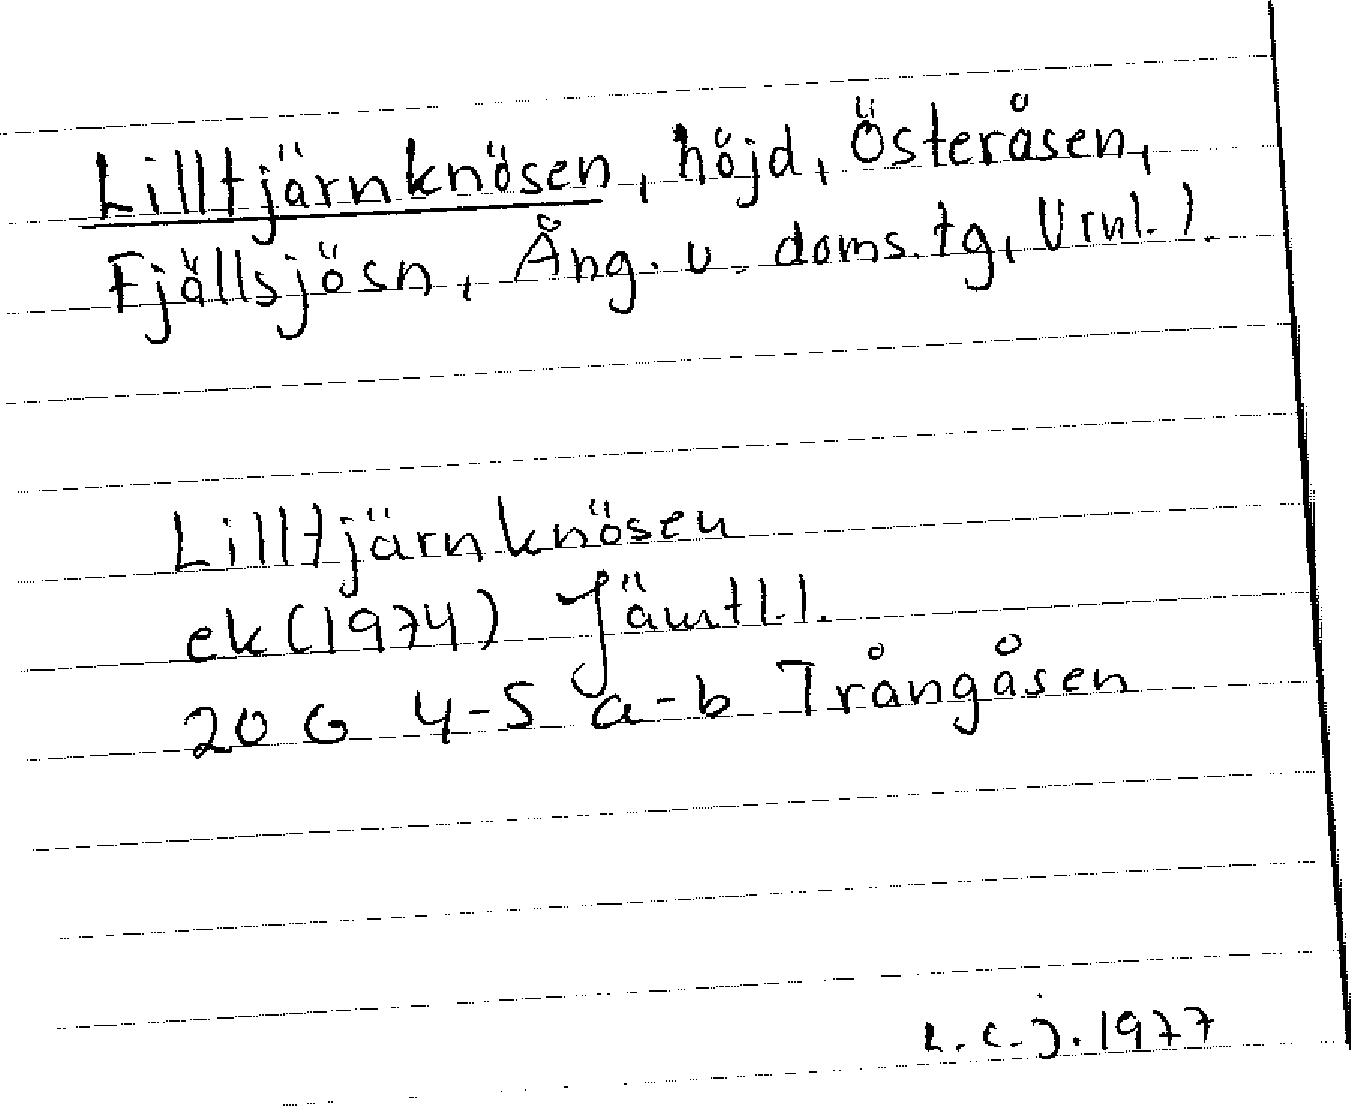 Lilltjärnknösen, höjd, Österåsen,
Fjällsjösn, Ång. v. doms.tg, Vrnl.).
Lilltjärnknösen
ek(1974) Jämtl.l.
20 G 4-5 a-b Trångåsen
L.C.J. 1977